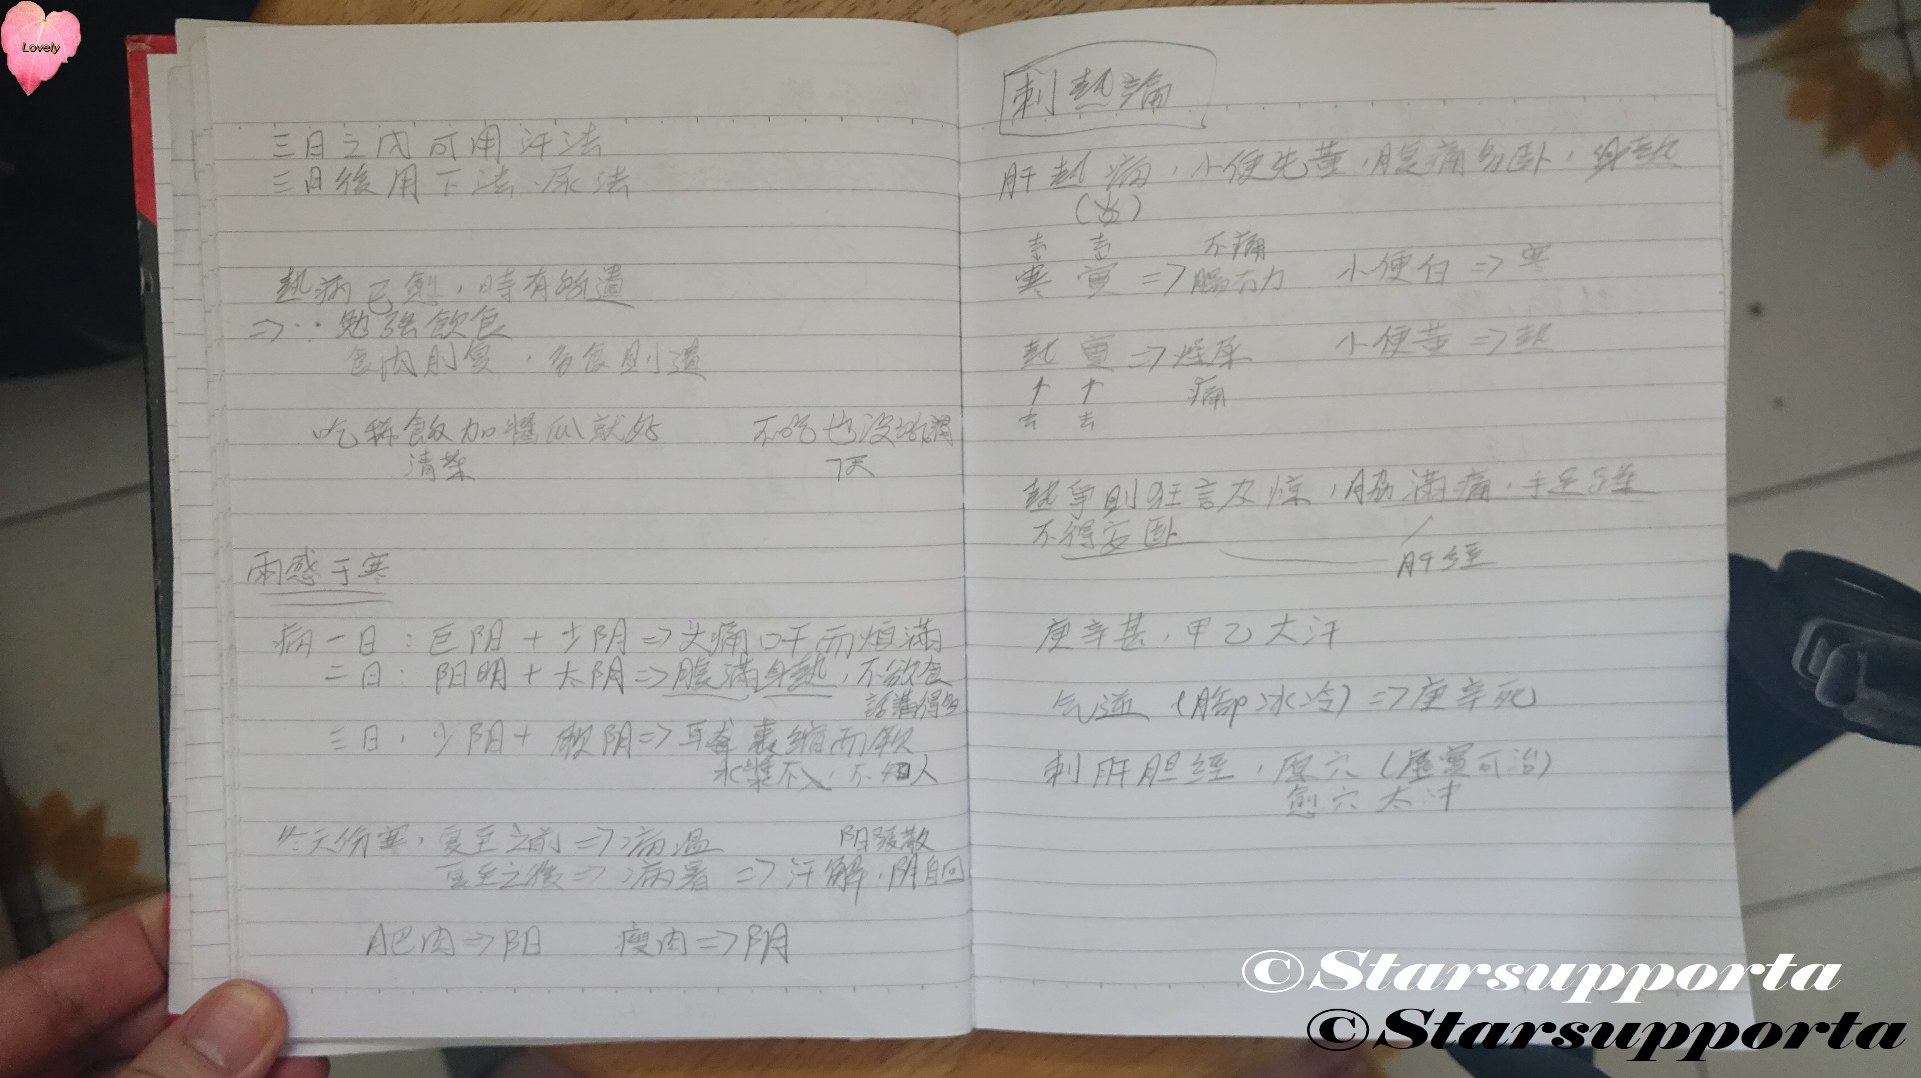 Lovely
三日之内可用汗法
三日後用下法.尿法
熱病已愈,時有所遺
=>∵勉强飲食
食肉則复,多食則遺
吃稀飯加醬瓜就好
清菜
不吃也没
7天
兩感于寒
病一日:巨阴+少阴=>头痛口干而烦滿
二日:阳明+太阴=>腹滿身熱,不欲食
話講得多
三日,少阴+厥阴=>耳聋囊缩而厥
水漿不入,不知人
冬天伤寒,夏至之前=>病温
夏至之後=>病暑=>汗解,阴自回
肥肉=>阳 瘦肉=>阴
刺熱論
肝熱病,小便先黄,腹痛多卧,身熱
寒實=>腸有力
不痛
小便白=>寒
熱實=>燥屎
痛
小便黄=>熱
去 去
熱争則狂言及惊,脇滿痛,手足躁
不得安卧
肝經
庚辛甚,甲乙大汗
气逆(腳冰冷)=>庚辛死
刺肝胆經,原穴(虚實可治)
俞穴 太冲
©Starsupporta
©Starsupporta